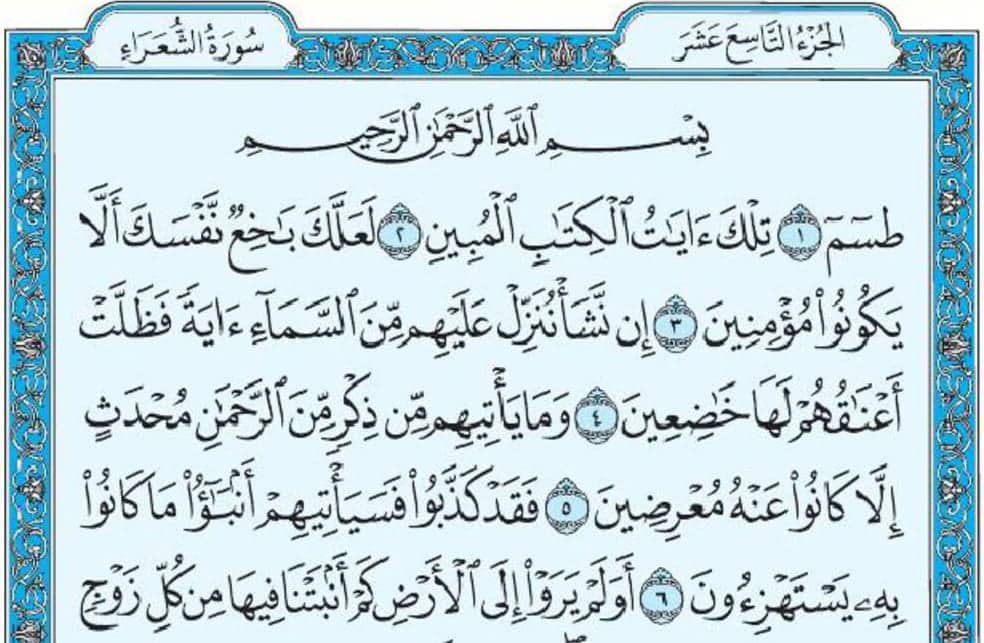 الجُزْءُ التَّاسِعَ عَشَرَ
سُورَةُ الشُّعَرَاءِ
بِسْمِ ٱللَّهِ ٱلرَّحْمَٰنِ ٱلرَّحِيمِ
طسٓمٓ ١ تِلْكَ ءَايَٰتُ ٱلْكِتَٰبِ ٱلْمُبِينِ ٢ لَعَلَّكَ بَٰخِعٌ نَّفْسَكَ أَلَّا
يَكُونُوا۟ مُؤْمِنِينَ ٣ إِن نَّشَأْ نُنَزِّلْ عَلَيْهِم مِّنَ ٱلسَّمَآءِ ءَايَةً فَظَلَّتْ
أَعْنَٰقُهُمْ لَهَا خَٰضِعِينَ ٤ وَمَا يَأْتِيهِم مِّن ذِكْرٍ مِّنَ ٱلرَّحْمَٰنِ مُحْدَثٍ
إِلَّا كَانُوا۟ عَنْهُ مُعْرِضِينَ ٥ فَقَدْ كَذَّبُوا۟ فَسَيَأْتِيهِمْ أَنۢبَٰٓؤُا۟ مَا كَانُوا۟
بِهِۦ يَسْتَهْزِءُونَ ٦ أَوَلَمْ يَرَوْا۟ إِلَى ٱلْأَرْضِ كَمْ أَنۢبَتْنَا فِيهَا مِن كُلِّ زَوْجٍ